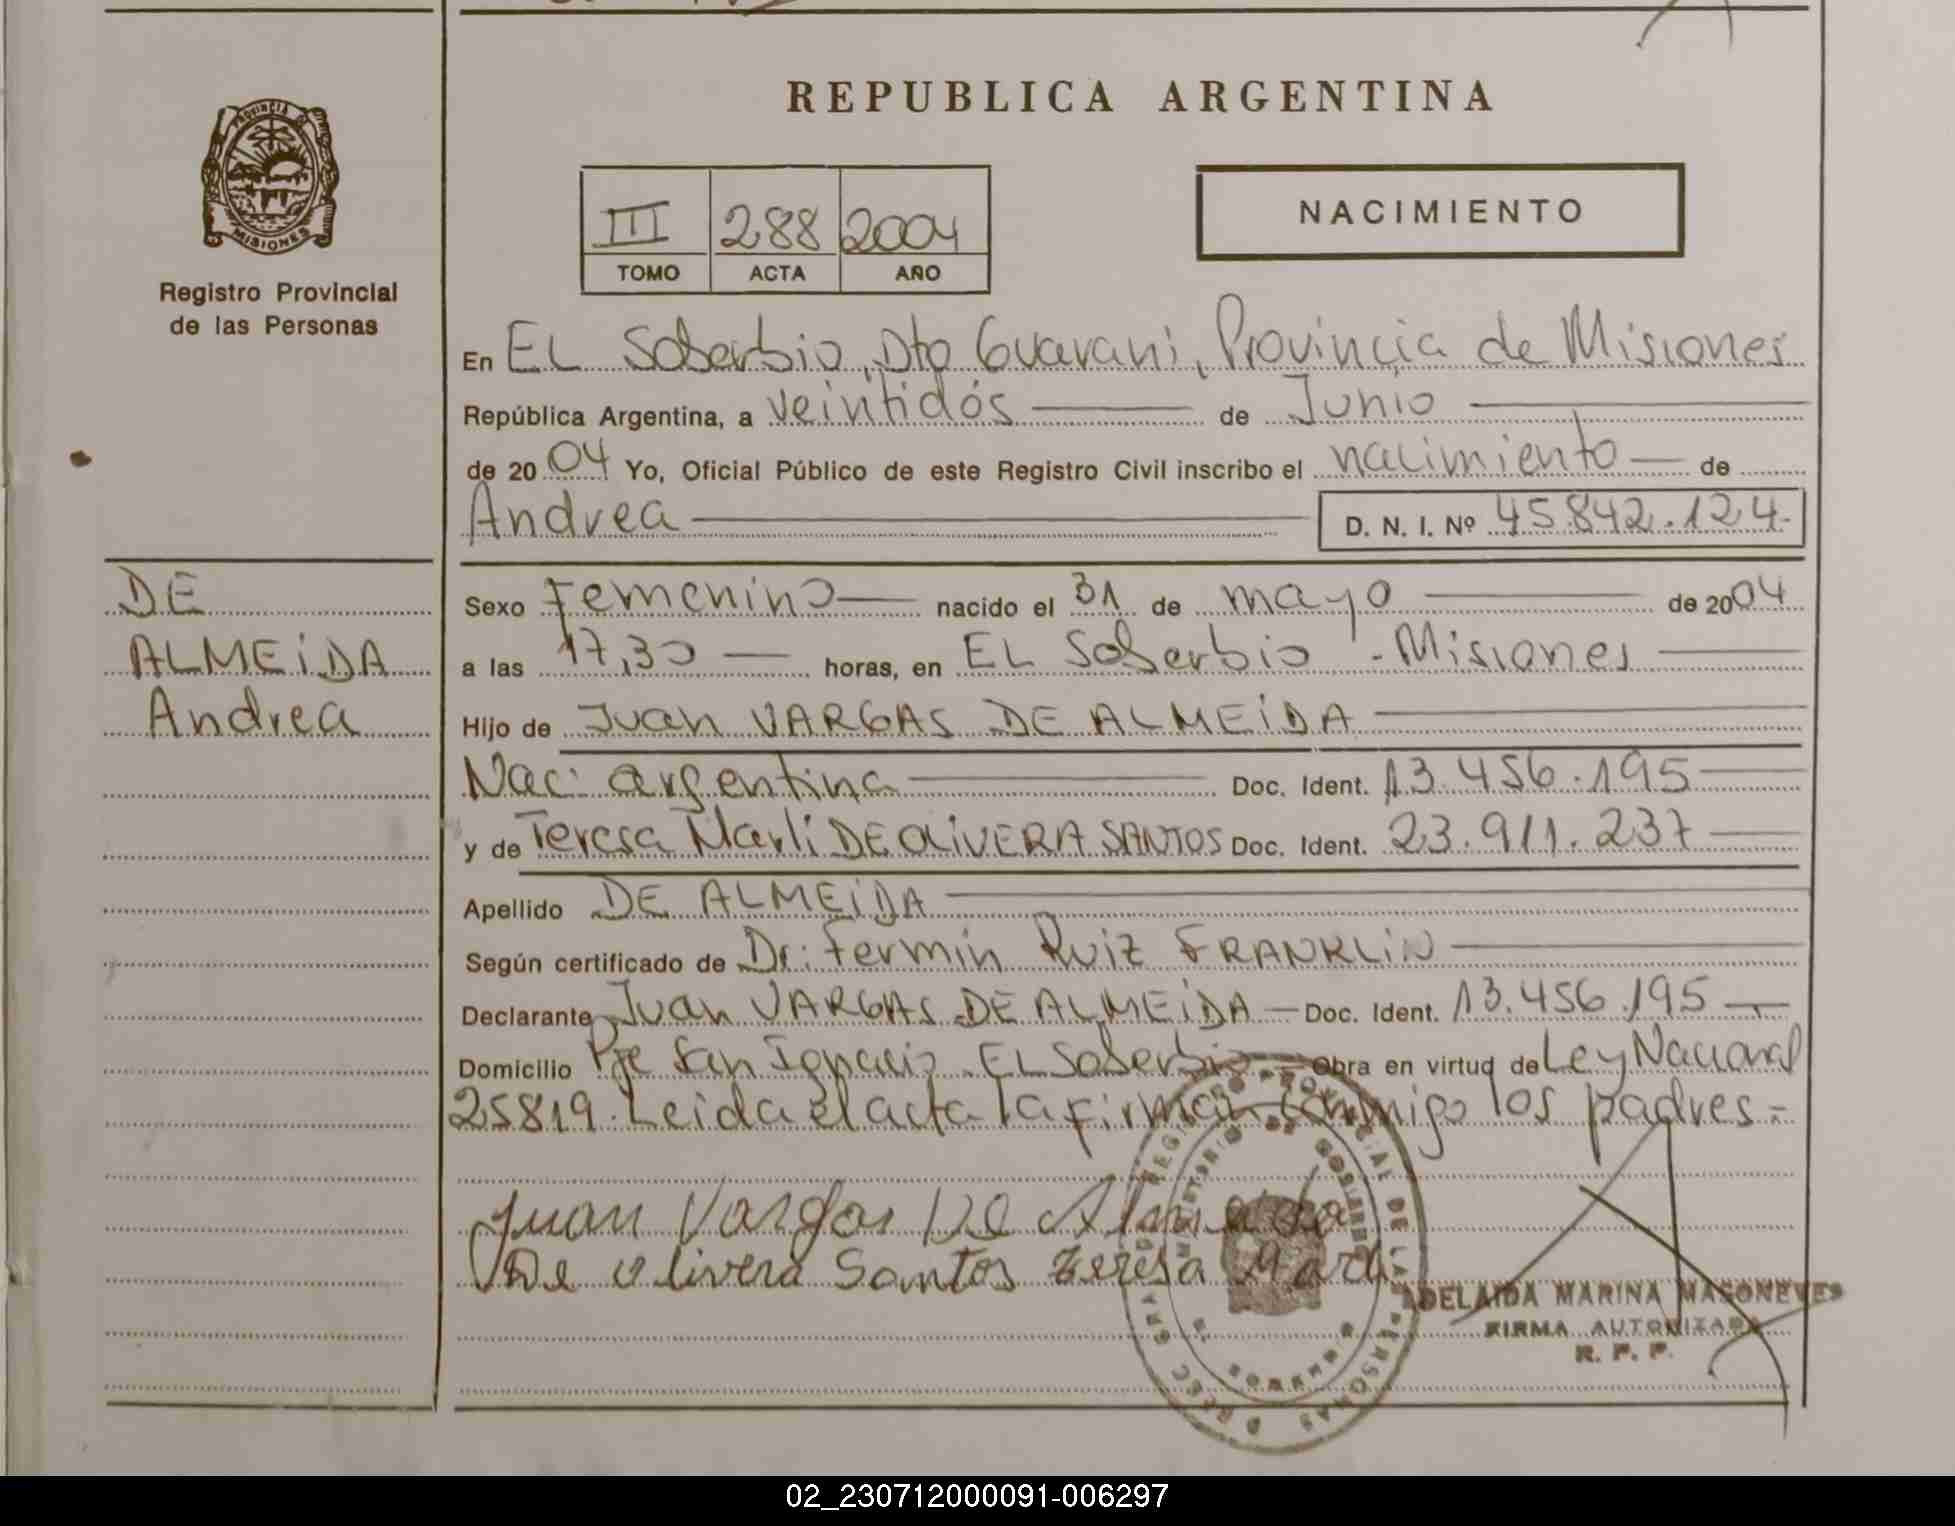 REPUBLICA ARGENTINA
PROVINCIA DE
MISIONES
Registro Provincial
de las Personas
III 288 2004
TOMO ACTA AÑO
NACIMIENTO
En EL Soberbio, Dto Guarani, Provincia de Misiones
República Argentina, a veintidós de Junio
de 2004 Yo, Oficial Público de este Registro Civil inscribo el nacimiento de
Andrea D. N. I. Nº 45.842.124
DE
ALMEiDA
Andrea
Sexo Femenino nacido el 31 de mayo de 2004
a las 17,30 horas, en EL Soberbio - Misiones
Hijo de Juan VARGAS DE ALMEiDA
Nac: argentina Doc. Ident. 13.456.195
y de Teresa Marli DE OLiVERA SANTOS Doc. Ident. 23.911.237
Apellido DE ALMEiDA
Según certificado de Dr: Fermin Ruiz FRANKLiN
Declarante Juan VARGAS DE ALMEiDA - Doc. Ident. 13.456.195
Domicilio Pje San Ignacio - EL Soberbio - Obra en virtud de Ley Nacional
25819. Leida el acta la firman conmigo los padres.-
Juan Vargas De Almeida
De olivera Santos Teresa Marli
ADELAIDA MARINA MASONEVES
FIRMA AUTORIZADA
R. P. P.
02_230712000091-006297